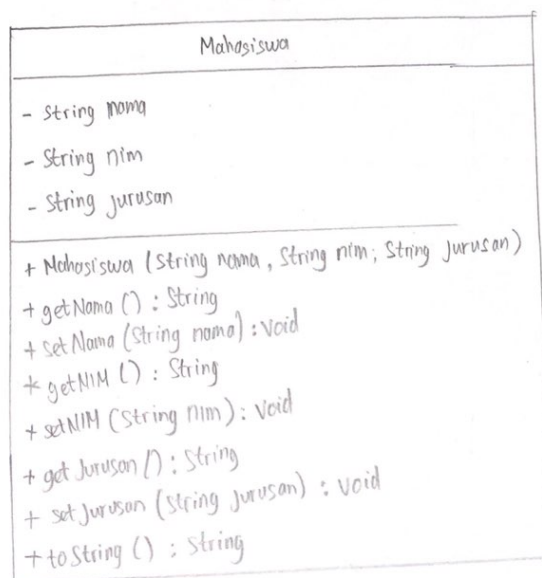 Mahasiswa
- String nama
- String nim
- String jurusan
+ Mahasiswa (String nama, String nim; String jurusan)
+ getNama () : String
+ setNama (String nama) : void
* getNIM () : String
+ setNIM (String nim) : void
+ getJurusan () : String
+ setJurusan (String jurusan) : void
+ toString () : String